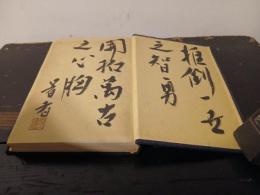 推倒一世
之智勇
開拓萬古
之心胸